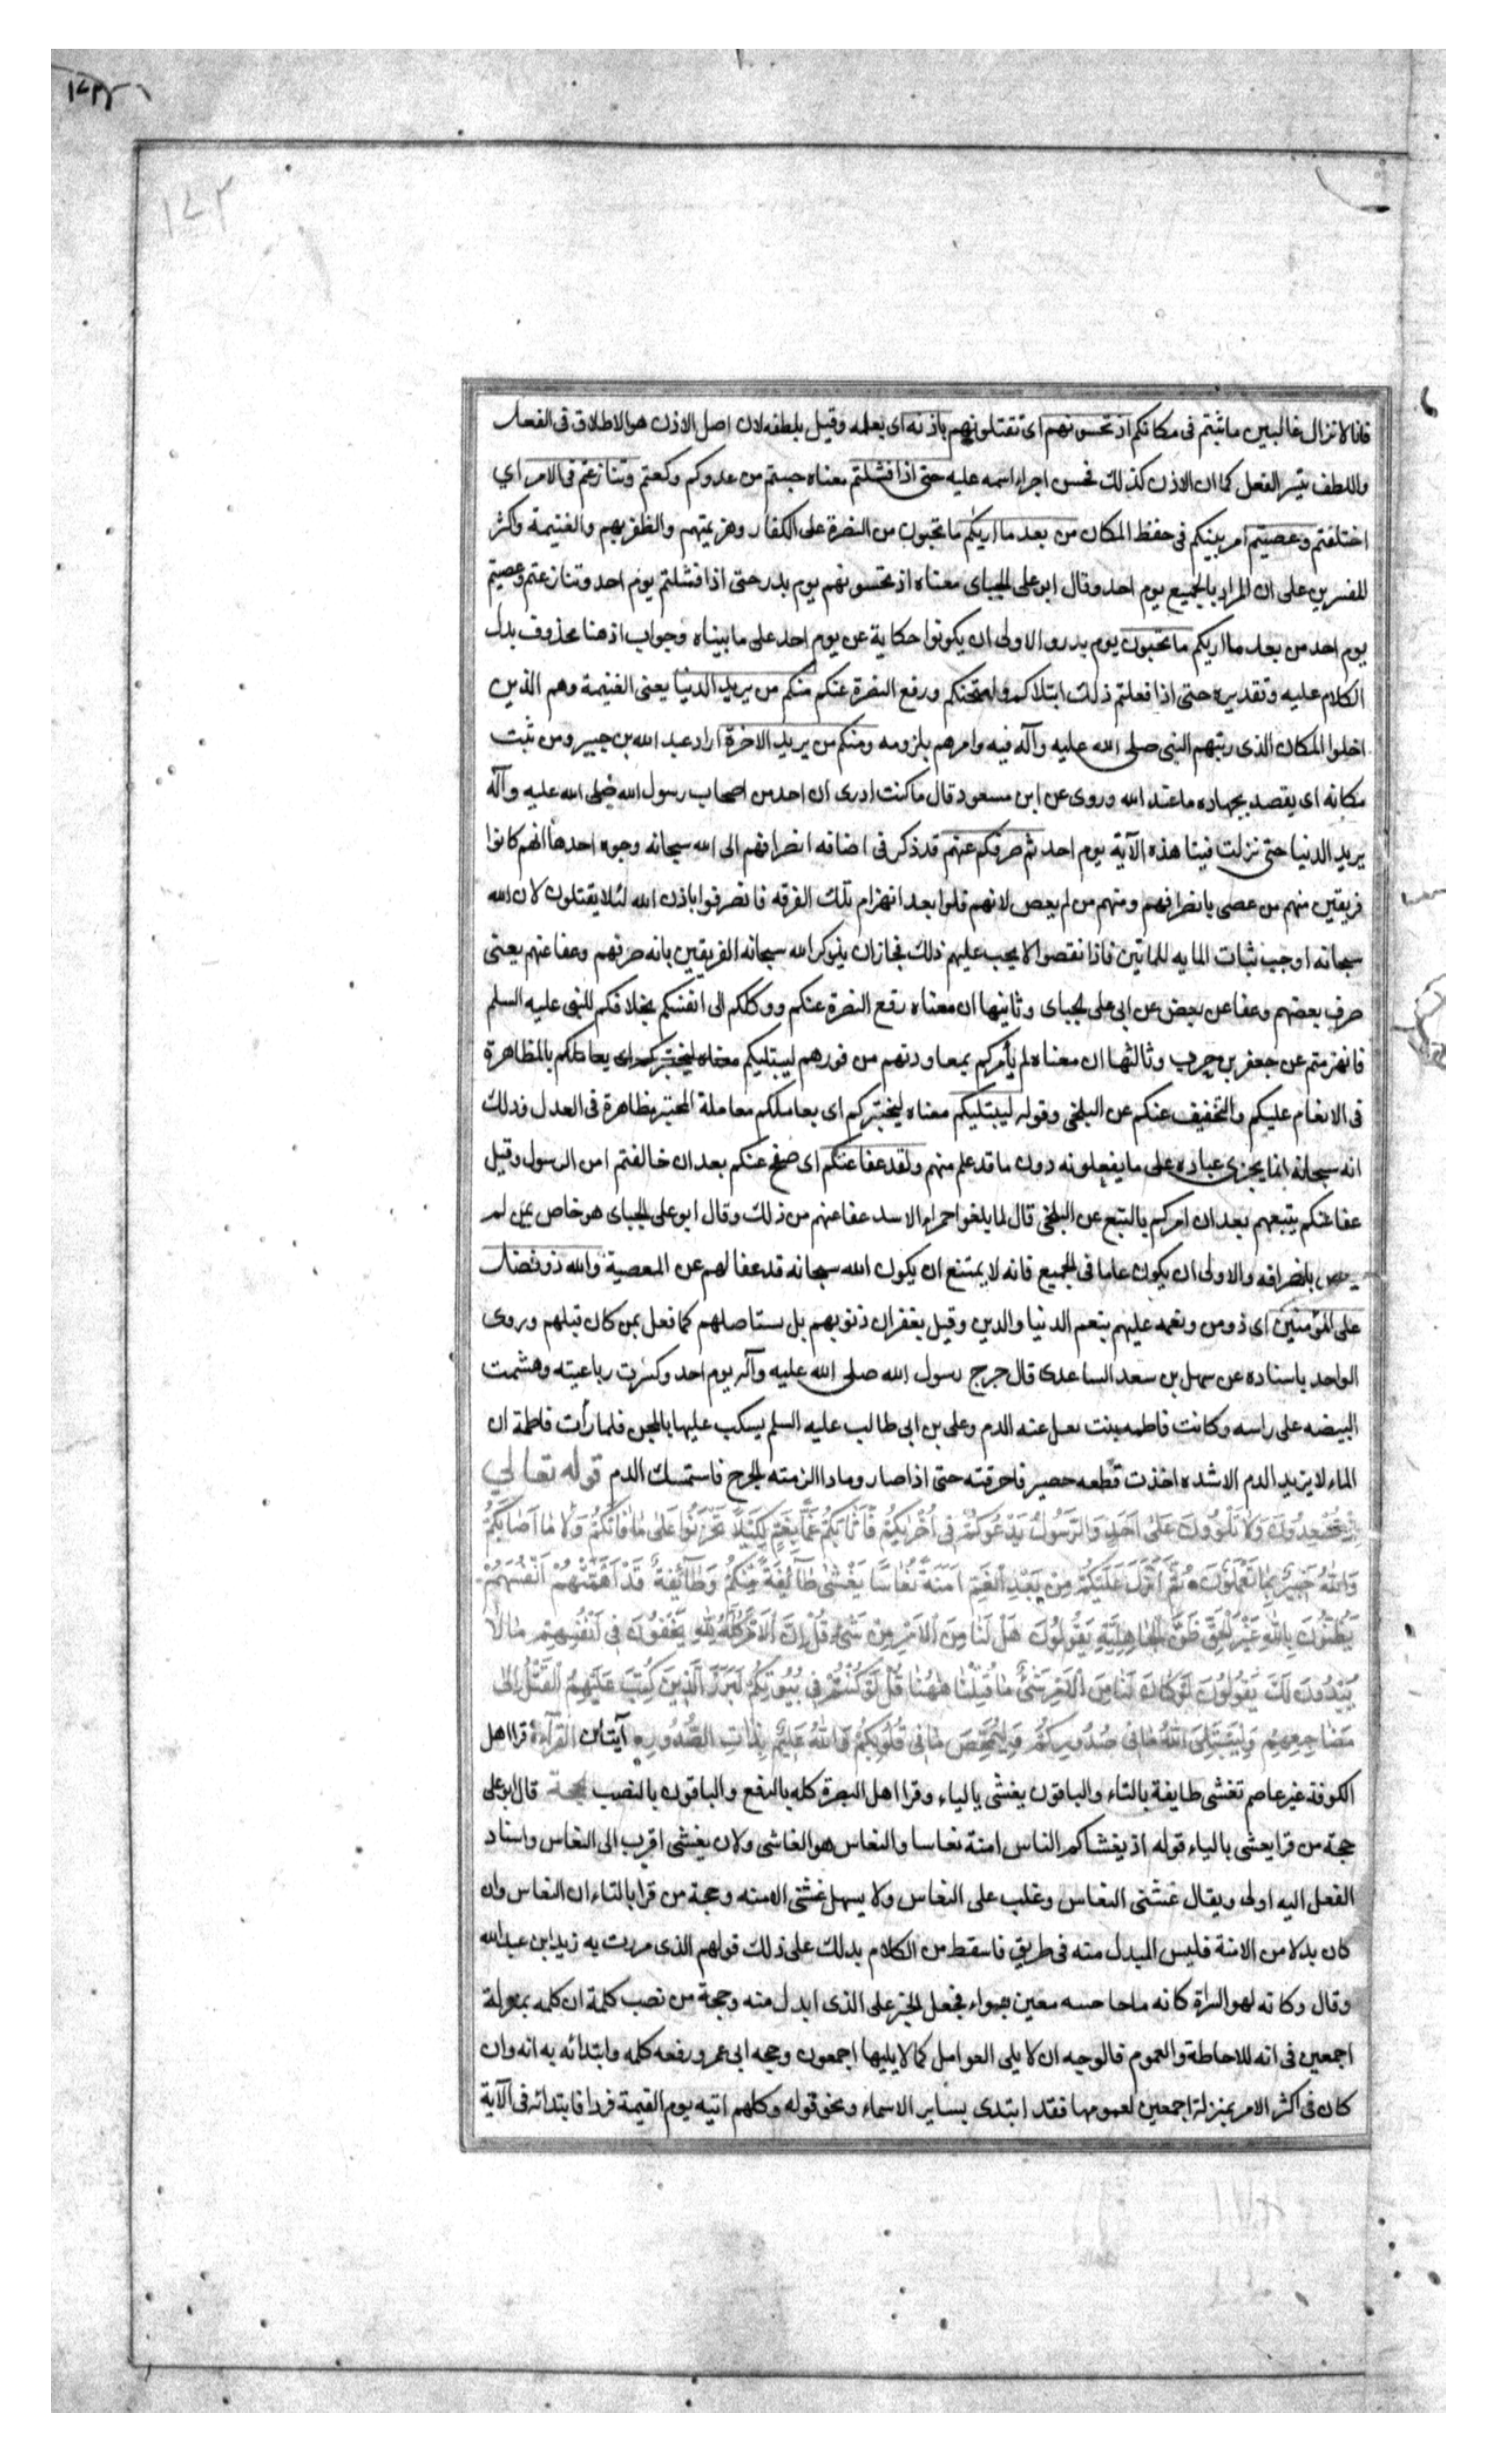 ١٧٣
١٧٣
فانا لا نزال غالبين ما ثبتم فى مكانكم اذ تحسونهم اى تقتلونهم باذنه اى بعلمه وقيل بلطفه لان اصل الاذن هو الاطلاق فى الفعل
واللطف تيسر الفعل كما ان الاذن كذلك فحسن اجراء اسمه عليه حتى اذا فشلتم معناه جبنتم من عدوكم وكعتم وتنازعتم فى الامر اي
اختلفتم وعصيتم امر نبيكم فى حفظ المكان من بعد ما اريكم ما تحبون من النصرة على الكفار وهزيمتهم والظفر بهم والغنيمة واكثر
المفسرين على ان المراد بالجميع يوم احد وقال ابو على الجباى معناه اذ تحسونهم يوم بدر حتى اذا فشلتم يوم احد وتنازعتم وعصيتم
يوم احد من بعد ما اريكم ما تحبون يوم بدر والاولى ان يكونوا حكاية عن يوم احد على ما بيناه وجواب اذ هنا محذوف بدل
الكلام عليه وتقديره حتى اذا فعلتم ذلك ابتلاكم وامتحنكم ورفع النصرة عنكم منكم من يريد الدنيا يعنى الغنيمة وهم الذين
اخلوا المكان الذى رتبهم النبى صلى الله عليه وآله فيه وامرهم بلزومه ومنكم من يريد الاخرة اراد عبد الله بن جبير ومن ثبت
مكانه اى يقصد بجهاده ما عند الله وروى عن ابن مسعود قال ما كنت ادرى ان احد من اصحاب رسول الله صلى الله عليه وآله
يريد الدنيا حتى نزلت فينا هذه الآية يوم احد ثم صرفكم عنهم قد ذكر فى اضافه انصرافهم الى الله سبحانه وجوه احدها انهم كانوا
فريقين منهم من عصى بانصرافهم ومنهم من لم يعص لانهم قلوا بعد انهزام تلك الفرقه فانصرفوا باذن الله لئلا يقتلون لان الله
سبحانه اوجب ثبات المايه للماتين فاذا نقصوا لا يجب عليهم ذلك فجاز ان يذكر الله سبحانه الفريقين بانه صرفهم وعفا عنهم يعنى
صرف بعضهم وعفا عن بعض عن ابى على الجباى وثانيها ان معناه رفع النصرة عنكم ووكلكم الى انفسكم بخلافكم للنبى عليه السلم
فانهزمتم عن جعفر بن حرب وثالثها ان معناه لم يأمركم بمعاودتهم من فورهم ليبتليكم بالمظاهرة
فى الانعام عليكم والتخفيف عنكم عن البلخى وقوله ليبتليكم معناه ليختبركم اى يعاملكم معاملة المختبر مظاهرة فى العدل وذلك
انه سبحانه انما يجزى عباده على ما يفعلونه دون ما قد علم منهم ولقد عفا عنكم اى صفح عنكم بعد ان خالفتم امر الرسول وقيل
عفا عنكم بتبعهم بعد ان امركم بالتبع عن البلخى قال لما بلغوا حمراء الاسد عفا عنهم من ذلك وقال ابو على الجباى هو خاص بمن لم
يعص بانصرافه والاولى ان يكون عاما فى الجميع فانه لا يمتنع ان يكون الله سبحانه قد عفا لهم عن المعصية والله ذو فضل
على المؤمنين اى ذو من ونعمه عليهم بنعم الدنيا والدين وقيل بغفران ذنوبهم بل يستاصلهم كما فعل بمن كان قبلهم وروى
الواحد باسناده عن سهل بن سعد الساعدى قال جرح رسول الله صلى الله عليه وآله يوم احد وكسرت رباعيته وهشمت
البيضه على راسه وكانت فاطمه بنت تغسل عنه الدم وعلى بن ابى طالب عليه السلم يسكب عليها بالمجن فلما رأت فاطمة ان
الماء لا يزيد الدم الا شده اخذت قطعه حصير فاحرقته حتى اذا صار رمادا الزمته الجرح فاستمسك الدم قوله تعالي
اِذْ تُصْعِدُونَ وَلَا تَلْوُونَ عَلٰى اَحَدٍ وَالرَّسُولُ يَدْعُوكُمْ فِى اُخْرٰيكُمْ فَاَثَابَكُمْ غَمًّا بِغَمٍّ لِكَيْلَا تَحْزَنُوا عَلٰى مَا فَاتَكُمْ وَلَا مَا اَصَابَكُمْ
وَاللّٰهُ خَبِيرٌ بِمَا تَعْمَلُونَ ثُمَّ اَنْزَلَ عَلَيْكُمْ مِنْ بَعْدِ الْغَمِّ اَمَنَةً نُعَاسًا يَغْشٰى طَآئِفَةً مِنْكُمْ وَطَآئِفَةٌ قَدْ اَهَمَّتْهُمْ اَنْفُسُهُمْ
يَظُنُّونَ بِاللّٰهِ غَيْرَ الْحَقِّ ظَنَّ الْجَاهِلِيَّةِ يَقُولُونَ هَلْ لَنَا مِنَ الْاَمْرِ مِنْ شَىْءٍ قُلْ اِنَّ الْاَمْرَ كُلَّهُ لِلّٰهِ يُخْفُونَ فِى اَنْفُسِهِمْ مَا لَا
يُبْدُونَ لَكَ يَقُولُونَ لَوْ كَانَ لَنَا مِنَ الْاَمْرِ شَىْءٌ مَا قُتِلْنَا هٰهُنَا قُلْ لَوْ كُنْتُمْ فِى بُيُوتِكُمْ لَبَرَزَ الَّذِينَ كُتِبَ عَلَيْهِمُ الْقَتْلُ اِلٰى
مَضَاجِعِهِمْ وَلِيَبْتَلِىَ اللّٰهُ مَا فِى صُدُورِكُمْ وَلِيُمَحِّصَ مَا فِى قُلُوبِكُمْ وَاللّٰهُ عَلِيمٌ بِذَاتِ الصُّدُورِ آيتان القرآءة قرا اهل
الكوفة غير عاصم تغشى طايفة بالتاء والباقون يغشى بالياء وقرا اهل البصرة كله بالرفع والباقون بالنصب الحجة قال ابو على
حجة من قرا يغشى بالياء قوله اذ يغشاكم الناس امنة نعاسا والنعاس هو الغاشى ولان يغشى اقرب الى النعاس واسناد
الفعل اليه اولى ويقال غشنى النعاس وغلب على النعاس ولا يسهل غشنى الامنه وحجة من قرا بالتاء ان النعاس وان
كان بدلا من الامنة فليس المبدل منه فى طريق فاسقط من الكلام بدلك على ذلك قولهم الذى مررت به زيد ابن عبد الله
وقال وكانه لهو السراة كانه ما حاحبه معين بسواد فجعل الخبر على الذى ابدل منه وحجة من نصب كلمة ان كله بمنزلة
اجمعين فى انه للاحاطة والعموم فالوجه ان لا يلى العوامل كما لا يليها اجمعون وحجه ابى عمرو رفعه كله وابتدائه به انه وان
كان فى اكثر الامر بمنزلة اجمعين لعمومها فقد ابتدى بساير الاسماء ونحو قوله وكلهم اتيه يوم القيمة فردا فابتدائه فى الآية